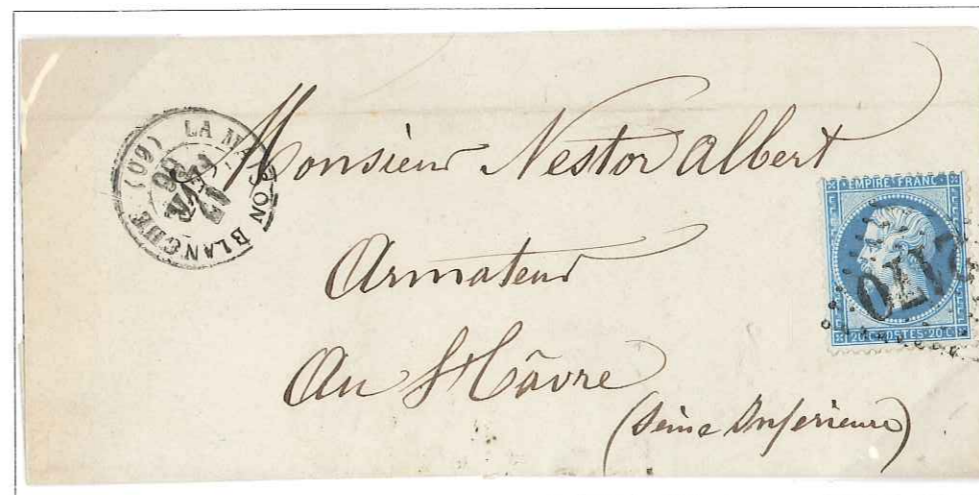 LA MAISON BLANCHE (60)
Monsieur Nestor Albert
Armateur
Au Hâvre
(Seine Inferieure)
EMPIRE FRANC
20C POSTES 20C
2170